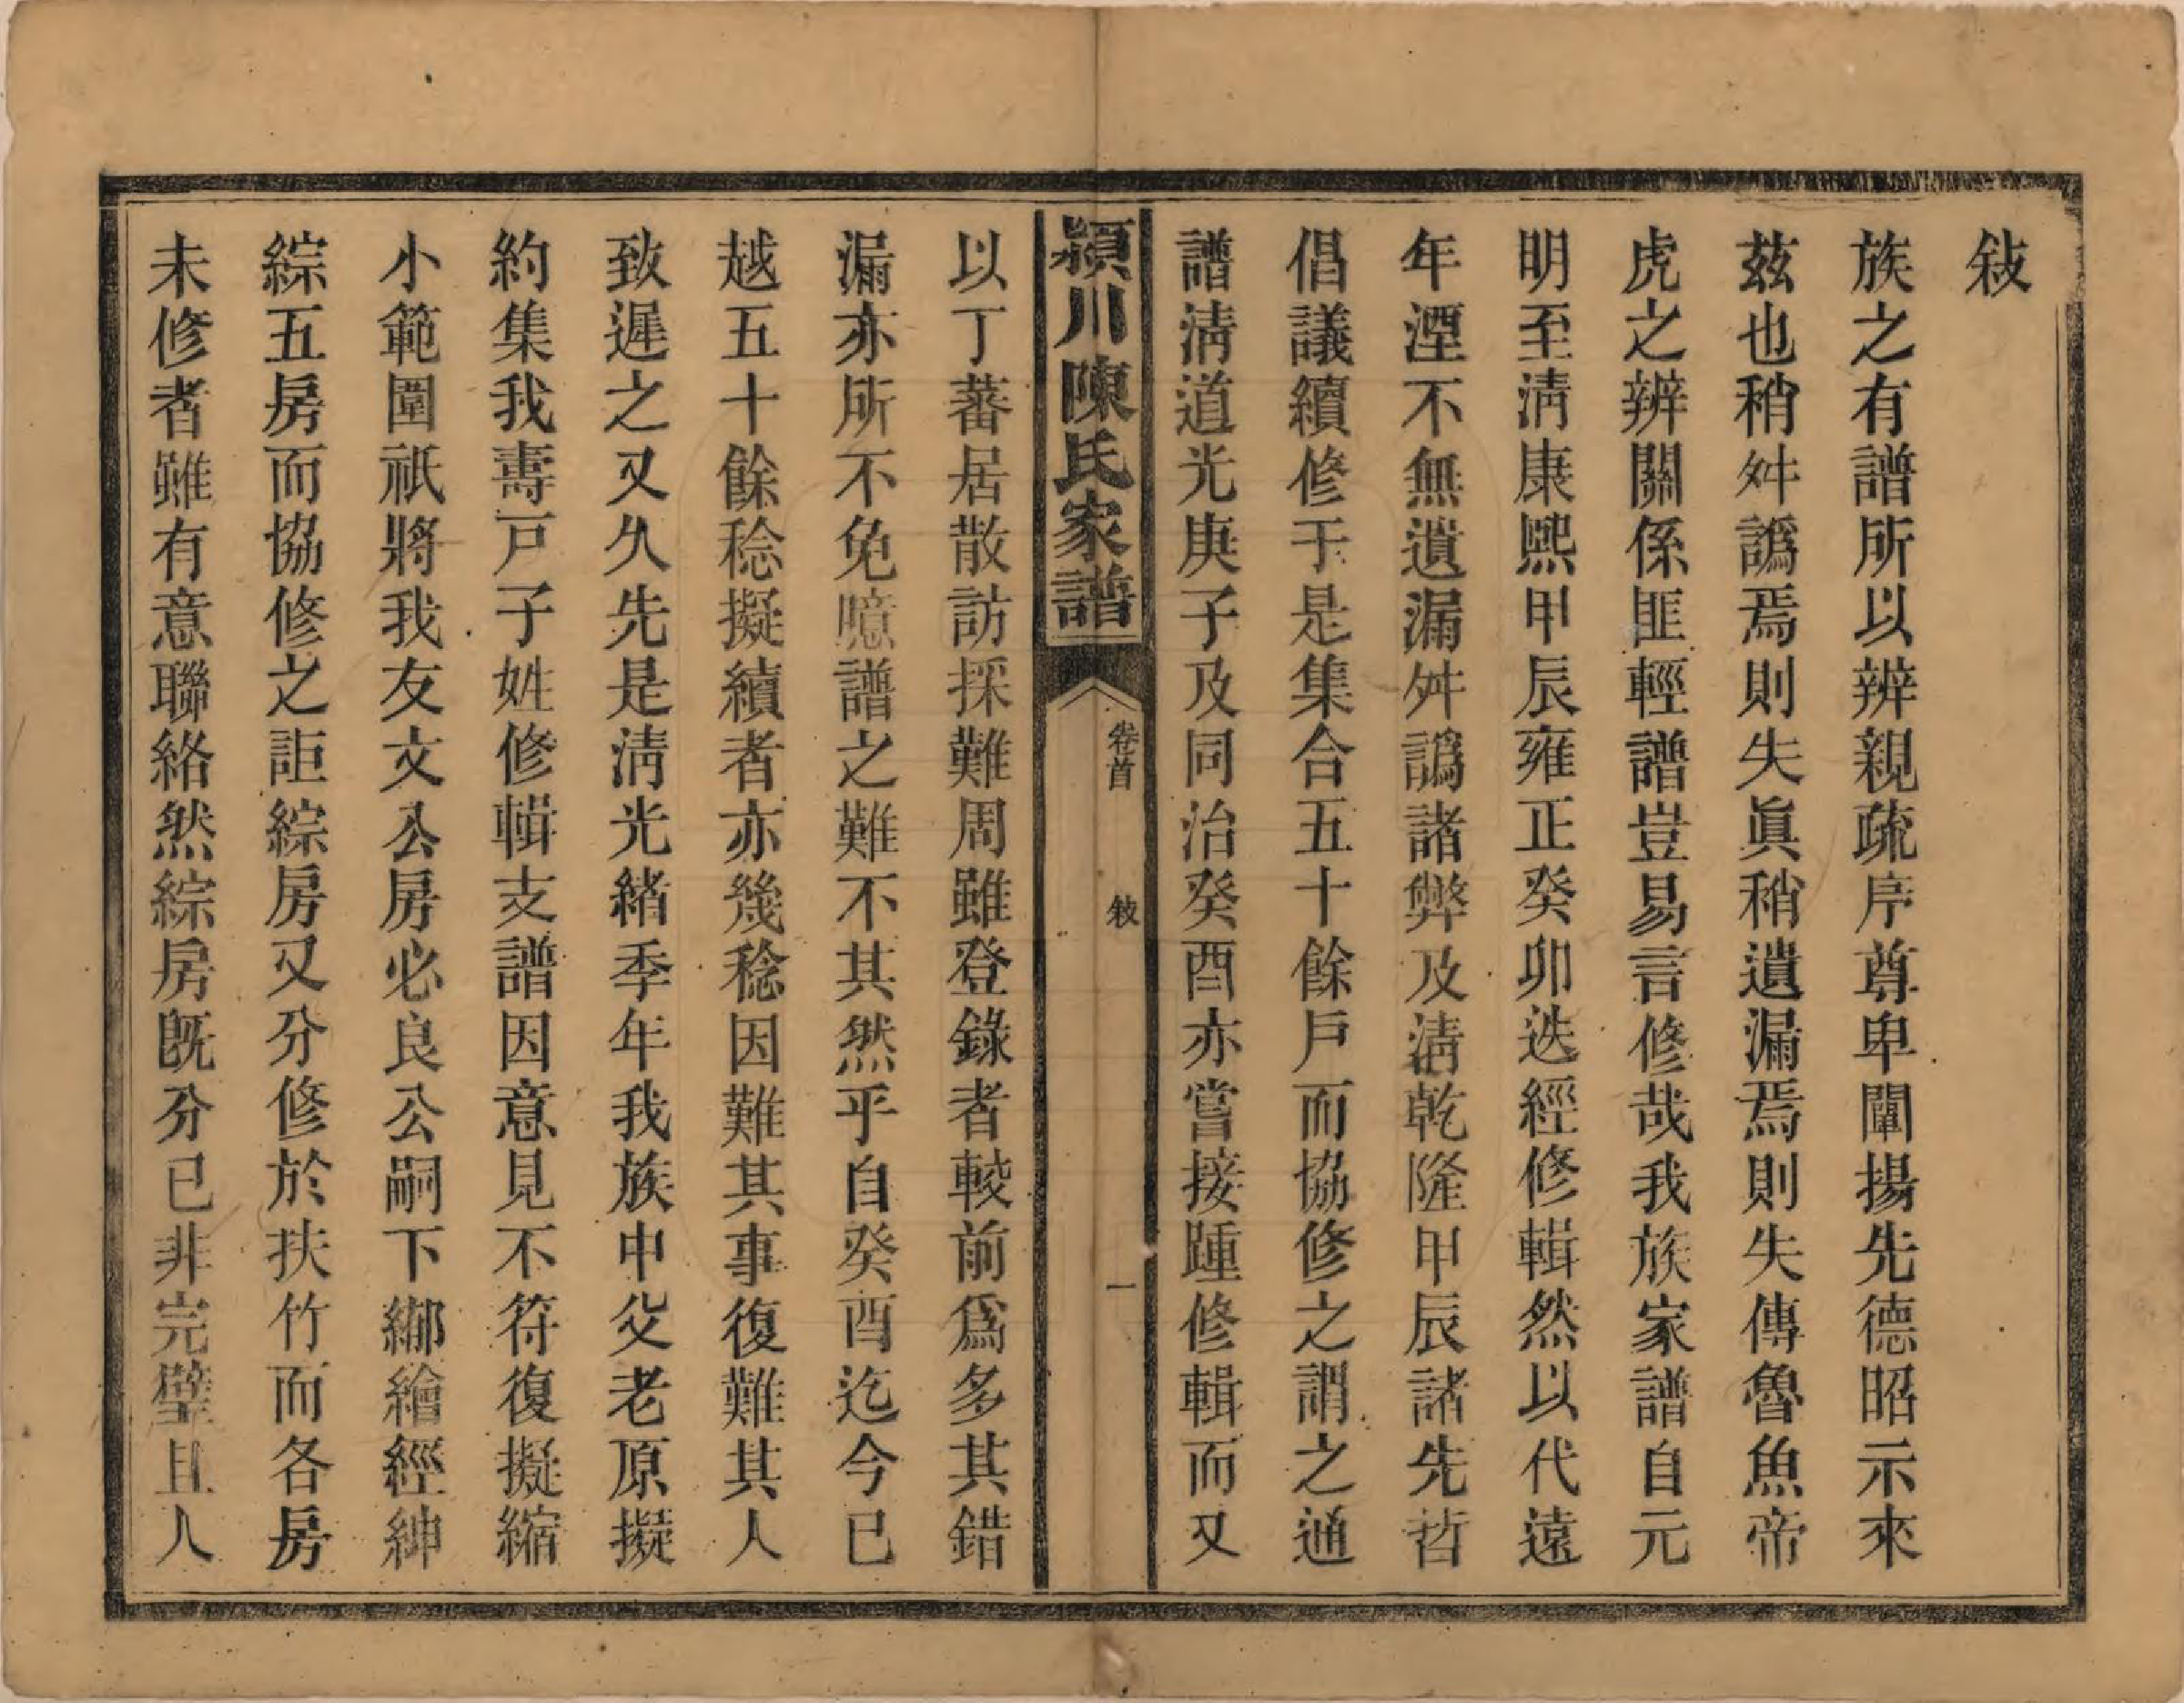 敍
族之有譜所以辨親疏序尊卑闡揚先德昭示來
茲也稍舛譌焉則失眞稍遺漏焉則失傳魯魚帝
虎之辨關係匪輕譜豈易言修哉我族家譜自元
明至淸康熙甲辰雍正癸卯迭經修輯然以代遠
年湮不無遺漏舛譌諸弊及淸乾隆甲辰諸先哲
倡議續修于是集合五十餘戶而協修之謂之通
譜淸道光庚子及同治癸酉亦嘗接踵修輯而又
潁川陳氏家譜
卷首
敍
一
以丁蕃居散訪採難周雖登錄者較前爲多其錯
漏亦所不免噫譜之難不其然乎自癸酉迄今已
越五十餘稔擬續者亦幾稔因難其事復難其人
致遲之又久先是淸光緒季年我族中父老原擬
約集我壽戸子姓修輯支譜因意見不符復擬縮
小範圍祇將我友文公房必良公嗣下綁繪經紳
綜五房而協修之詎綜房又分修於扶竹而各房
未修者雖有意聯絡然綜房旣分已非完璧且人